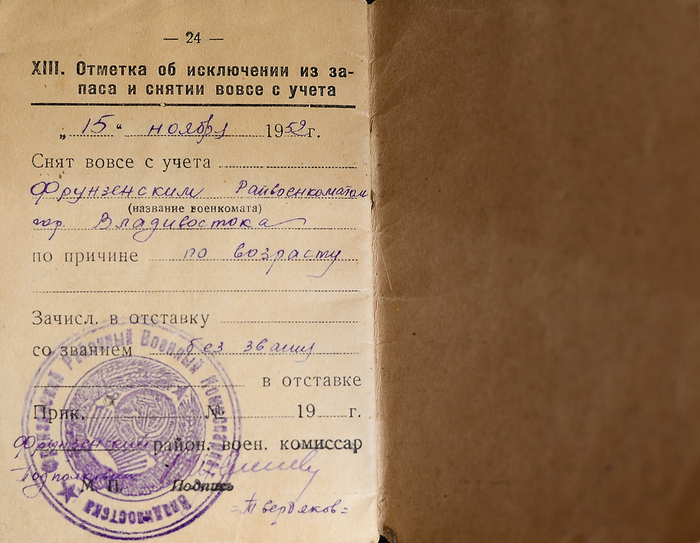 — 24 —
XIII. Отметка об исключении из за-
паса и снятии вовсе с учета
„15“ ноября 1952г.
Снят вовсе с учета
Фрунзенским Райвоенкоматом
(название военкомата)
гор. Владивостока
по причине по возрасту
Зачисл. в отставку
со званием без звания
в отставке
Прик. № 19 г.
Фрунзенский район. воен. комиссар
М. П. Подпись
=Твердяков=
Фрунзенский Районный Военный Комиссариат
Владивостока